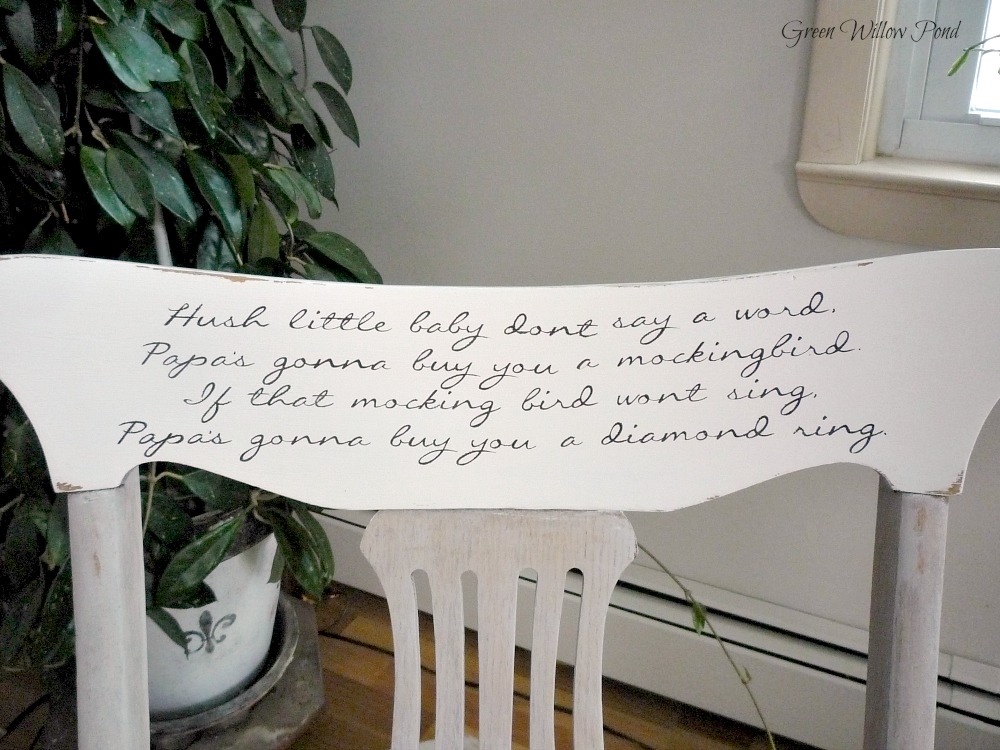 Green Willow Pond
Hush little baby dont say a word,
Papa's gonna buy you a mockingbird.
If that mocking bird wont sing,
Papa's gonna buy you a diamond ring.